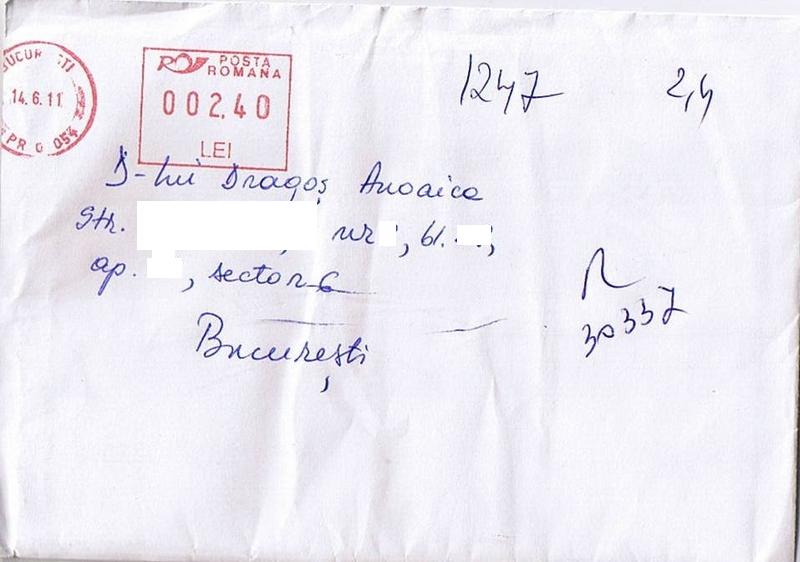 BUCUR TI
14.6.11
PR 0 054
POSTA
ROMANA
002.40
LEI
1247
2,4
D-lui Dragoș Anoaica
Str. , nr , bl. ,
ap. , sector 6
București
R
30337